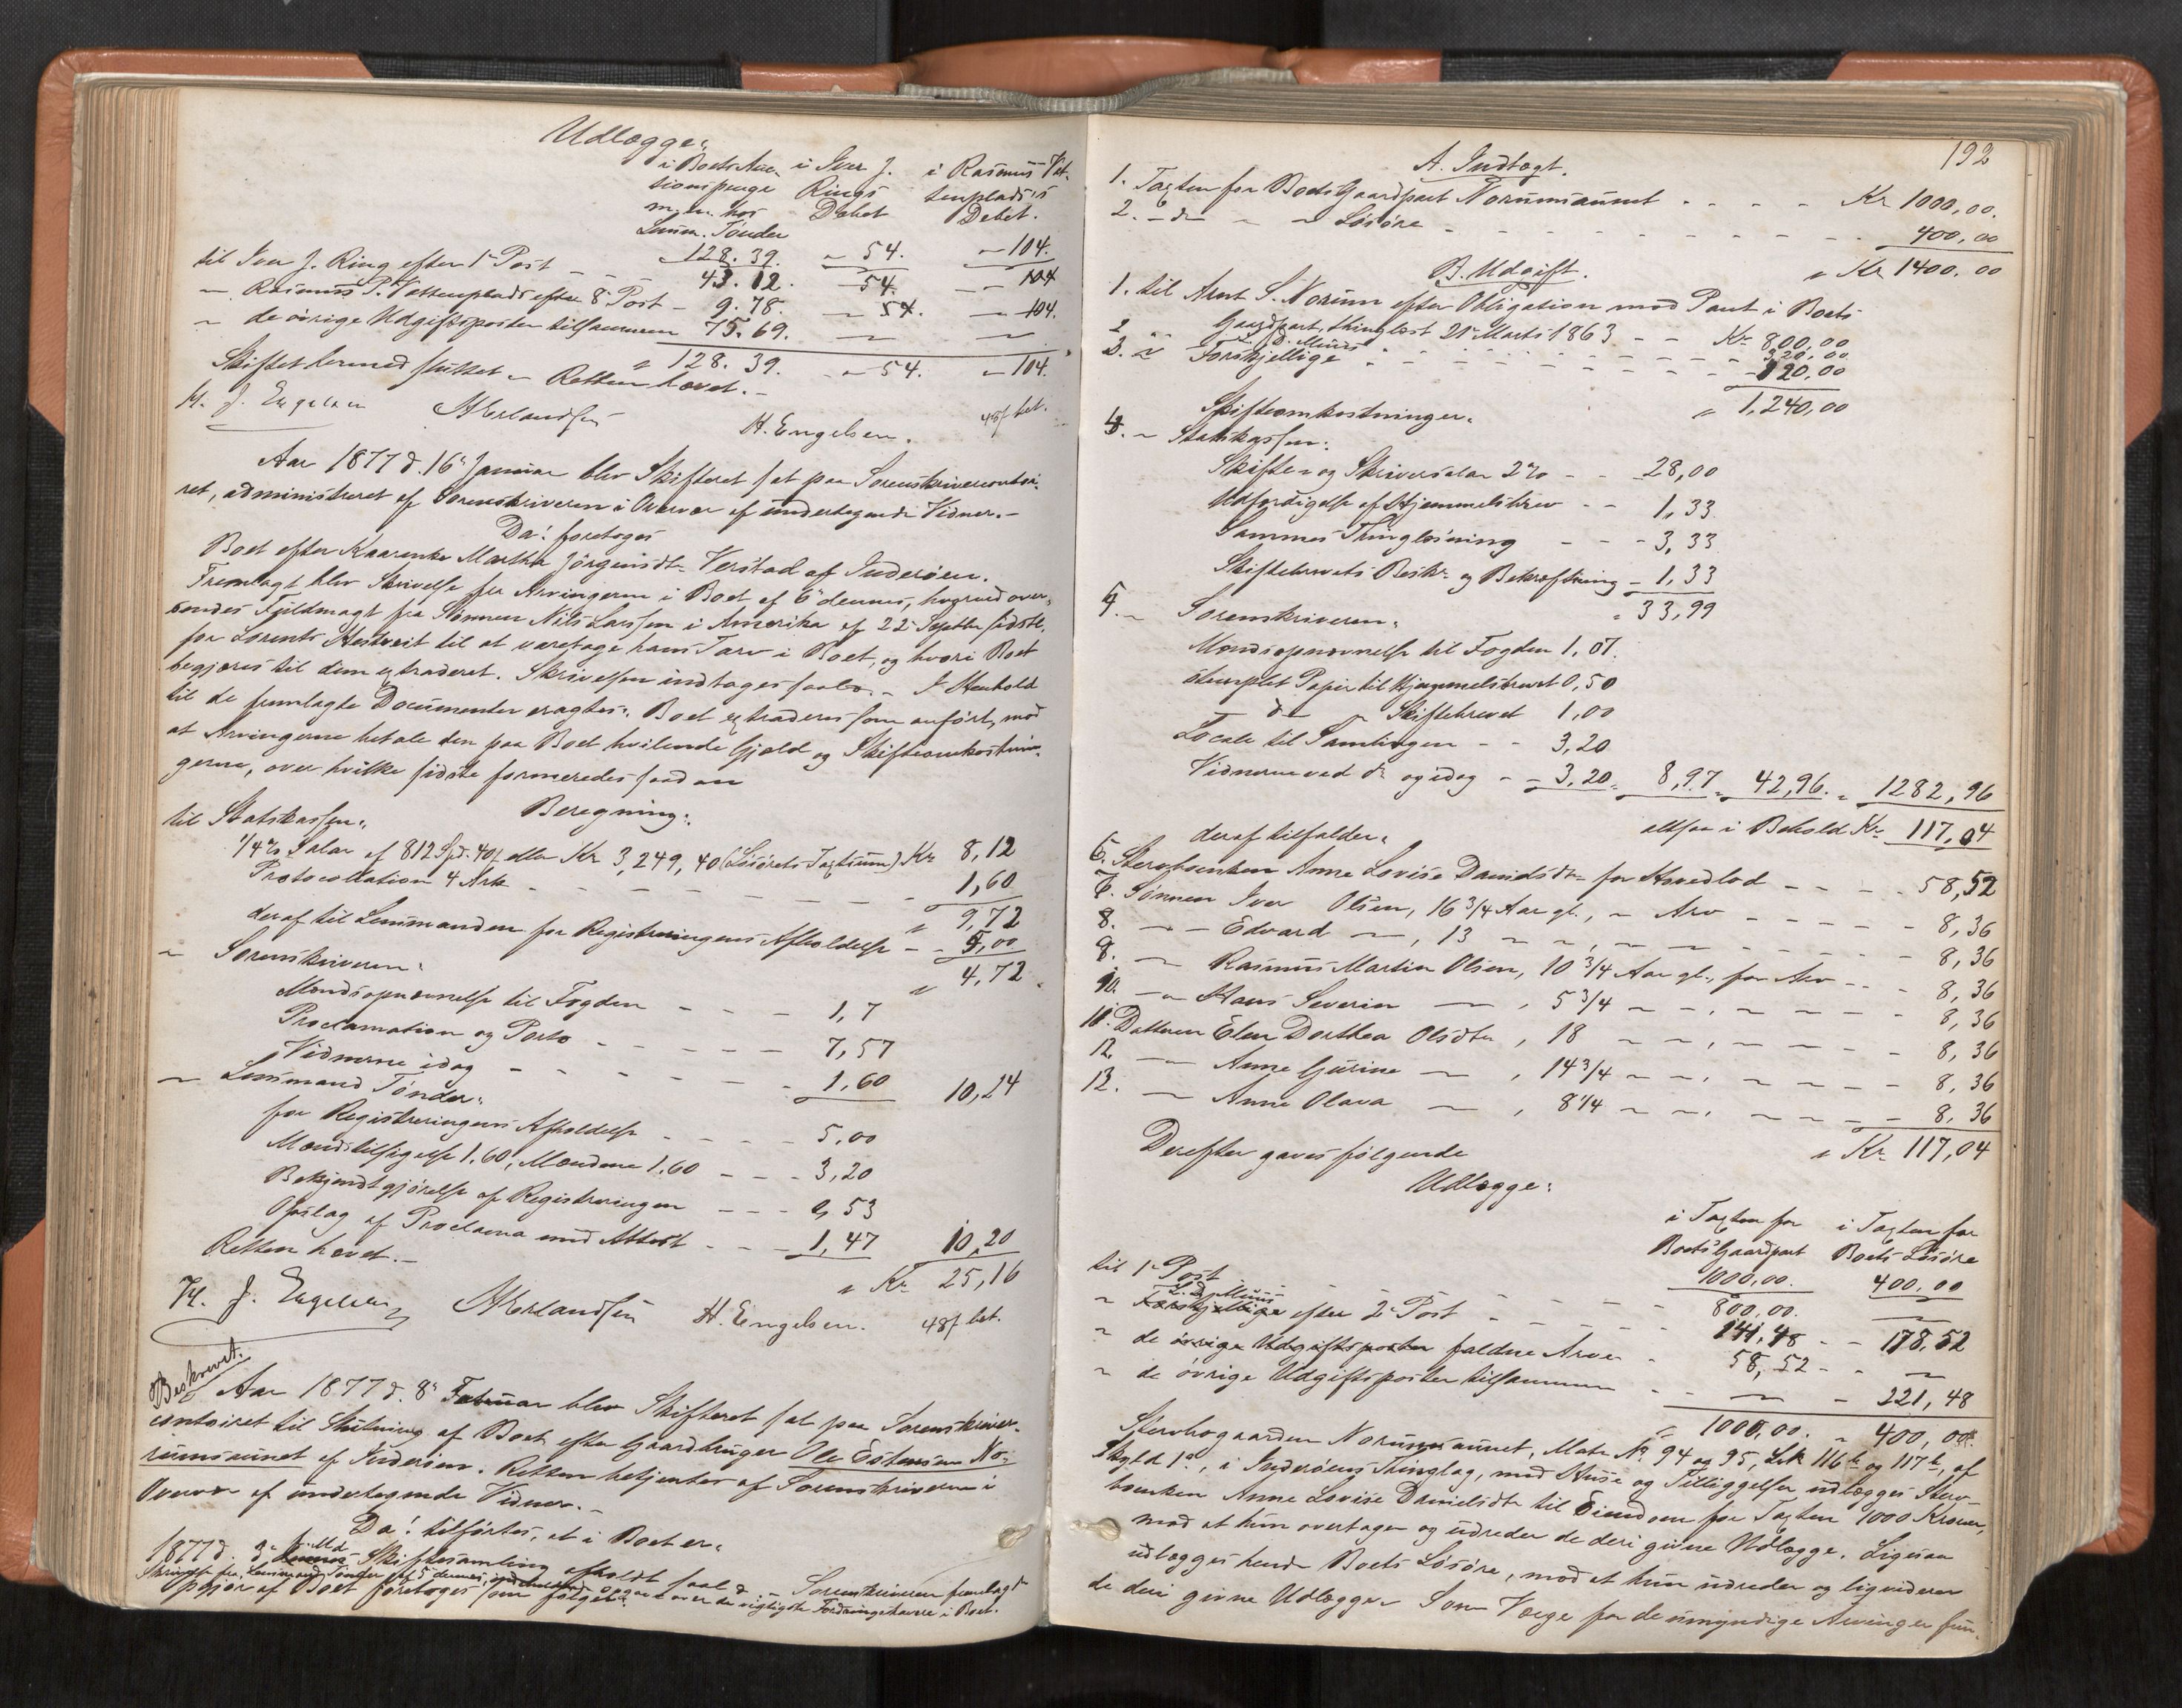 Udlægge:
i Boets Auc- i Iver J. i Rasmus Vat-
tionspenge Rings tenplads's
m. m. hos Debet Debet.
Lensm. Tønder
128. 39. " 54. " 104.
til Iver J. Ring efter 1ste Post 43. 12. 54. 104
" Rasmus P. Vattenplads efter 8de Post - 9. 78. " 54. " 104.
" de øvrige Udgiftsposter tilsammen 75. 69. " "
" 128. 39. " 54. " 104.
Skiftet hermed sluttet. - Retten hævet. -
H. J. Engelsen AErlandsen H. Engelsen. 48ß bet.
Aar 1877 d. 16de Januar blev Skifteret sat paa Sorenskrivercontoi-
ret, administreret af Sorenskriveren i Overvær af undertegnede Vidner. -
Da! foretoges
Boet efter Kaarenke Martha Jørgensdtr Verstad af Inderøen.
Fremlagt blev Skrivelse fra Arvingerne i Boet af 6te dennes, hvorved over-
sendes Fuldmagt fra Sønnen Nils Larssen i Amerika af 22de Septbr sidstl.
for Lorents Hestveit til at varetage hans Tarv i Boet, og hvori Boet
begjæres til dem extraderet. Skrivelsen indtages saal. - I Henhold
til de fremlagte Documenter eragtes: Boet extraderes som anført, mod
at Arvingerne betale den paa Boet hvilende Gjæld og Skifteomkostnin-
gerne, over hvilke sidste formeredes saadan
Beregning:
til Statskassen:
1/4% Salar af 812 Spd. 40ß eller Kr 3,249,40 (Løsørets Taxtsum) Kr 8,12
Protocollation 4 Ark - - - 1,60
" 9,72
deraf til Lensmanden for Registreringens Afholdelse - - 5,00
" 4,72
" Sorenskriveren:
Mændsopnævnelse til Fogden - - - 1,7
Proclamation og Porto - - - 7,57
Vidnerne idag - - - 1,60 10,24
" Lensmand Tønder:
for Registreringens Afholdelse - - - 5,00
Mændstilsigelse 1.60, Mændene 1.60 - - - 3,20
Bekjendtgjørelse af Registreringen - - - 0,53
Opslag af Proclama med Attest - - - 1,47 10,20
Retten hævet. - " Kr. 25,16
H. J. Engelsen AErlandsen H. Engelsen. 48ß bet.
Beskrevet.
Aar 1877 d. 8de Februar blev Skifteret sat paa Sorenskriver-
contoiret til Slutning af Boet efter Gaardbruger Ole Estensen No-
rumsaunet af Inderøen. Retten betjentes af Sorenskriveren i
Overvær af undertegnede Vidner. -
Da! tilførtes, at i Boet er:
1877 d. 3die Skiftesamling afholdt saal. - Sorenskriveren fremlagde
Skrivelse fra Lensmand Tønder af 5 dennes, Opgave over de vigtigste Fordringshavere i Boet.
Opgjør af Boet foretoges som følger:
192
A. Indtægt.
1. Taxten for Boets Gaardpart Norumsaunet - - - - Kr. 1000,00.
2. - d - - " Løsøre - - - - 400,00
" Kr. 1400.00
B. Udgift.
1. til Arnt S. Norum efter Obligation med Pant i Boets
Gaardpart, thinglæst 21de Marts 1863 - - Kr. 800,00
2. " L. d. Muus - - - 320,00
3. " Forskjellige - - - 120,00
" 1,240,00
Skifteomkostninger:
4. " Statskassen:
Skifte- og Skriversalar 2% - - 28,00
Udfærdigelse af Hjemmelsbrev - - 1,33
Sammes Thinglæsning - - - 3,33
Skiftebrevets Beskr. og Bekræftning - 1,33
" 33,99
5. " Sorenskriveren:
Mændsopnævnelse til Fogden 1,07.
stemplet Papir til Hjemmelsbrevet 0,50
- d - " Skiftebrevet 1,00
Locale til Samlingen - - 3,20
Vidnerne ved do og idag - - 3,20. 8,97. 42,96. " 1282,96
altsaa i Behold Kr. 117,04
deraf tilfalder:
6. Stervboenken Anne Lovise Danielsdtr for Hovedlod - - - 58,52
7. Sønnen Iver Olsen, 16 3/4 Aar gl., " Arv - - - 8,36
8. - " - Edvard " , 13 " " , " - - - 8,36
9. " Rasmus Martin Olsen, 10 3/4 Aar gl., for Arv - - - 8,36
10. " Hans Severin " , 5 3/4 " " , " - - - 8,36
11. Datteren Elen Dorthea Olsdtr , 18 " " , " - - 8,36
12. " Anne Gurine " , 14 3/4 " " , " - - - 8,36
13. " Anne Olava " , 8 1/4 " " , " - - - 8,36
" Kr. 117,04
Derefter gaves følgende
Udlægge:
i Taxten for i Taxten for
Boets Gaardpart Boets Løsøre
1000,00. 400,00
til 1ste Post - - - 800,00. "
" L. d. Muus Forskjellige efter 2de Post - - - 141,48 - - 178,52
" de øvrige Udgiftsposter faldne Arve - 58,52 - - "
" de øvrige Udgiftsposter tilsammen - - " - 221,48
" 1000,00. " 400,00.
Stervbogaarden Norumsaunet, Matr. No 94 og 95, Lb. 116b og 117b, af
Skyld 1 , i Inderøens Thinglag, med Huse og Tilliggelser udlægges Sterv-
boenken Anne Lovise Danielsdtr til Eiendom for Taxten 1000 Kroner,
mod at hun overtager og udreder de deri givne Udlægge. Ligesaa
udlægges hende Boets Løsøre, mod at hun udreder og liqviderer
de deri givne Udlægge. Som Værge for de umyndige Arvinger fun-